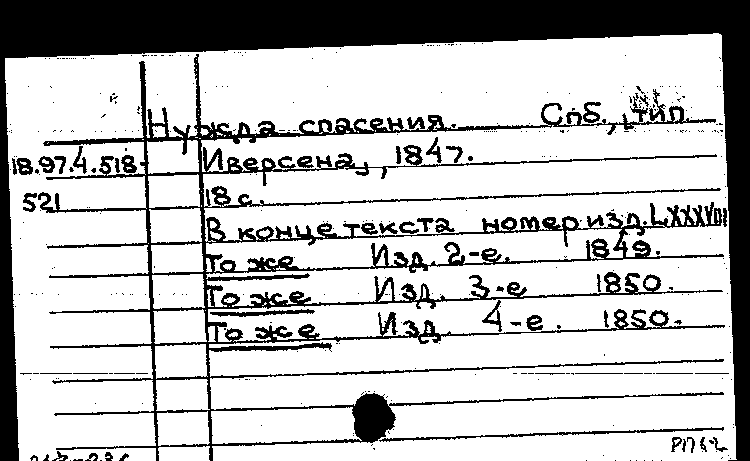 Нужда спасения. Спб., тип.
18.97.4.518- Иверсена, 1847.
521 18 с.
В конце текста номер изд. LXXXVIII
То же Изд. 2-е. 1849.
То же Изд. 3-е 1850.
То же. Изд. 4-е. 1850.